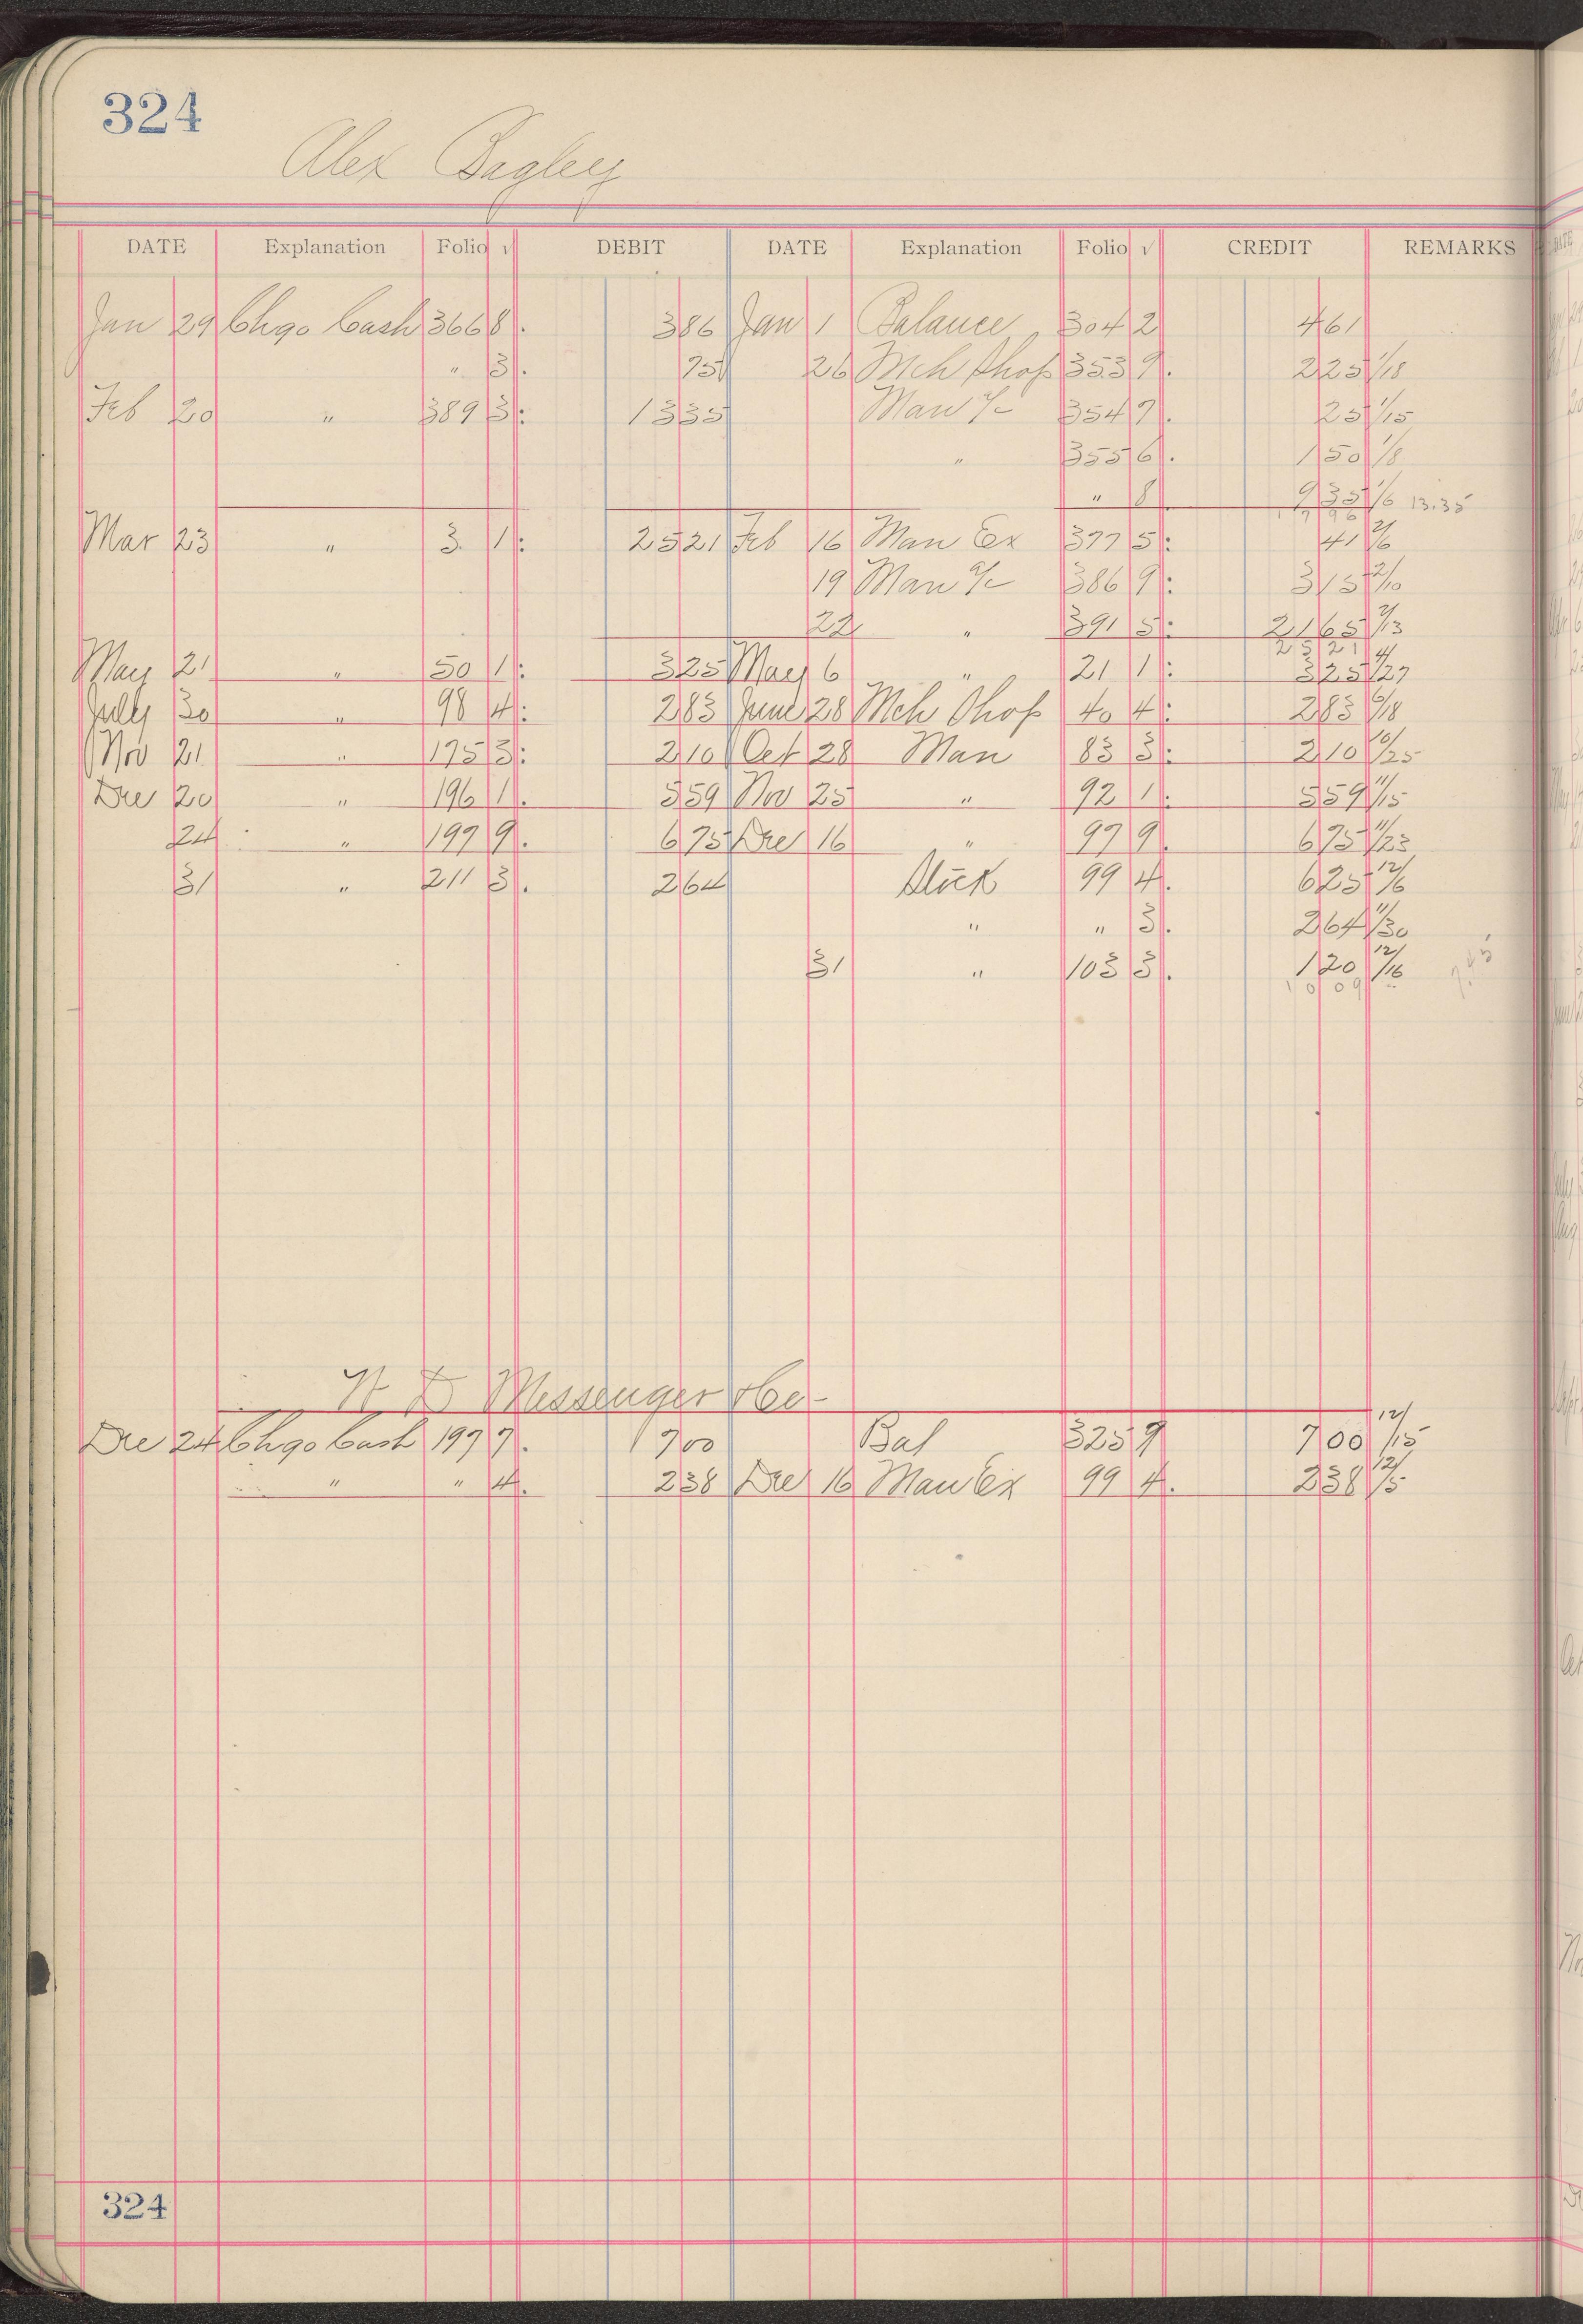 324
Alex Bagley
DATE Explanation Folio √ DEBIT DATE Explanation Folio √ CREDIT REMARKS
Jan 29 Chgo Cash 366 8. 386 Jan 1 Balance 304 2 461
" 3. 75 26 Mch Shop 353 9. 225 1/18
Feb 20 " 389 3: 1335 Man a/c 354 7. 25 1/15
" 355 6. 150 1/8
" 8. 935 1/6 13.35
1796
Mar 23 " 3 1: 2521 Feb 16 Man Ex 377 5: 41 2/6
19 Man a/c 386 9: 315 2/10
22 " 391 5: 2165 2/13
2521
May 21 " 50 1: 325 May 6 " 21 1: 325 4/27
July 30 " 98 4: 283 June 28 Mch Shop 40 4: 283 6/18
Nov 21 " 175 3: 210 Oct 28 Man 83 3: 210 10/25
Dec 20 " 196 1. 559 Nov 25 " 92 1. 559 11/15
24 " 197 9. 675 Dec 16 " 97 9. 675 11/23
31 " 211 3. 264 99 4. 625 12/6
" " 3. 264 11/30
31 " 103 3. 120 12/16
1009 7.45
N D Messenger Co-
Dec 24 Chgo Cash 197 7. 700 Bal 325 9 700 12/15
" " 4. 238 Dec 16 Man Ex 99 4. 238 12/5
324